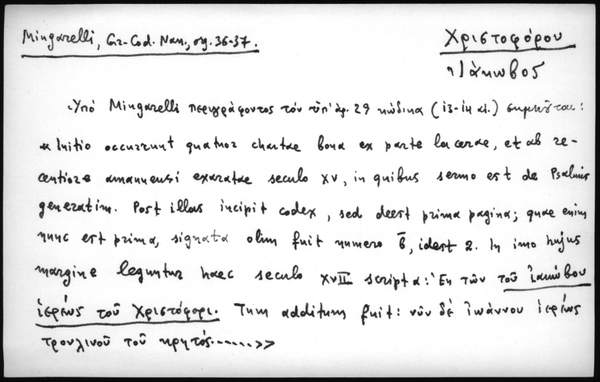 Mingarelli, Gr. Cod. Nan., σγ. 36-37.
Χριστοφόρου
Ἰάκωβος
Ὑπό Mingarelli περιγράφοντος τόν ὑπ' ἀρ. 29 κώδικα (13-14 αἰ.) σημειοῦται:
« Initio occurrunt quatuor chartae bona ex parte lacerae, et ab re-
centiore amanuensi exaratae seculo XV, in quibus sermo est de Psalmis
generatim. Post illas incipit codex, sed deest prima pagina; quae enim
nunc est prima, signata olim fuit numero β̅, idest 2. In imo hujus
margine leguntur haec seculo XVII scripta: Ἐκ τῶν τοῦ ἰακώβου
ἱερέως τοῦ Χριστόφορι. Tum additum fuit: νῦν δὲ ἰωάννου ἱερέως
τρουλινοῦ τοῦ κρητός......>>